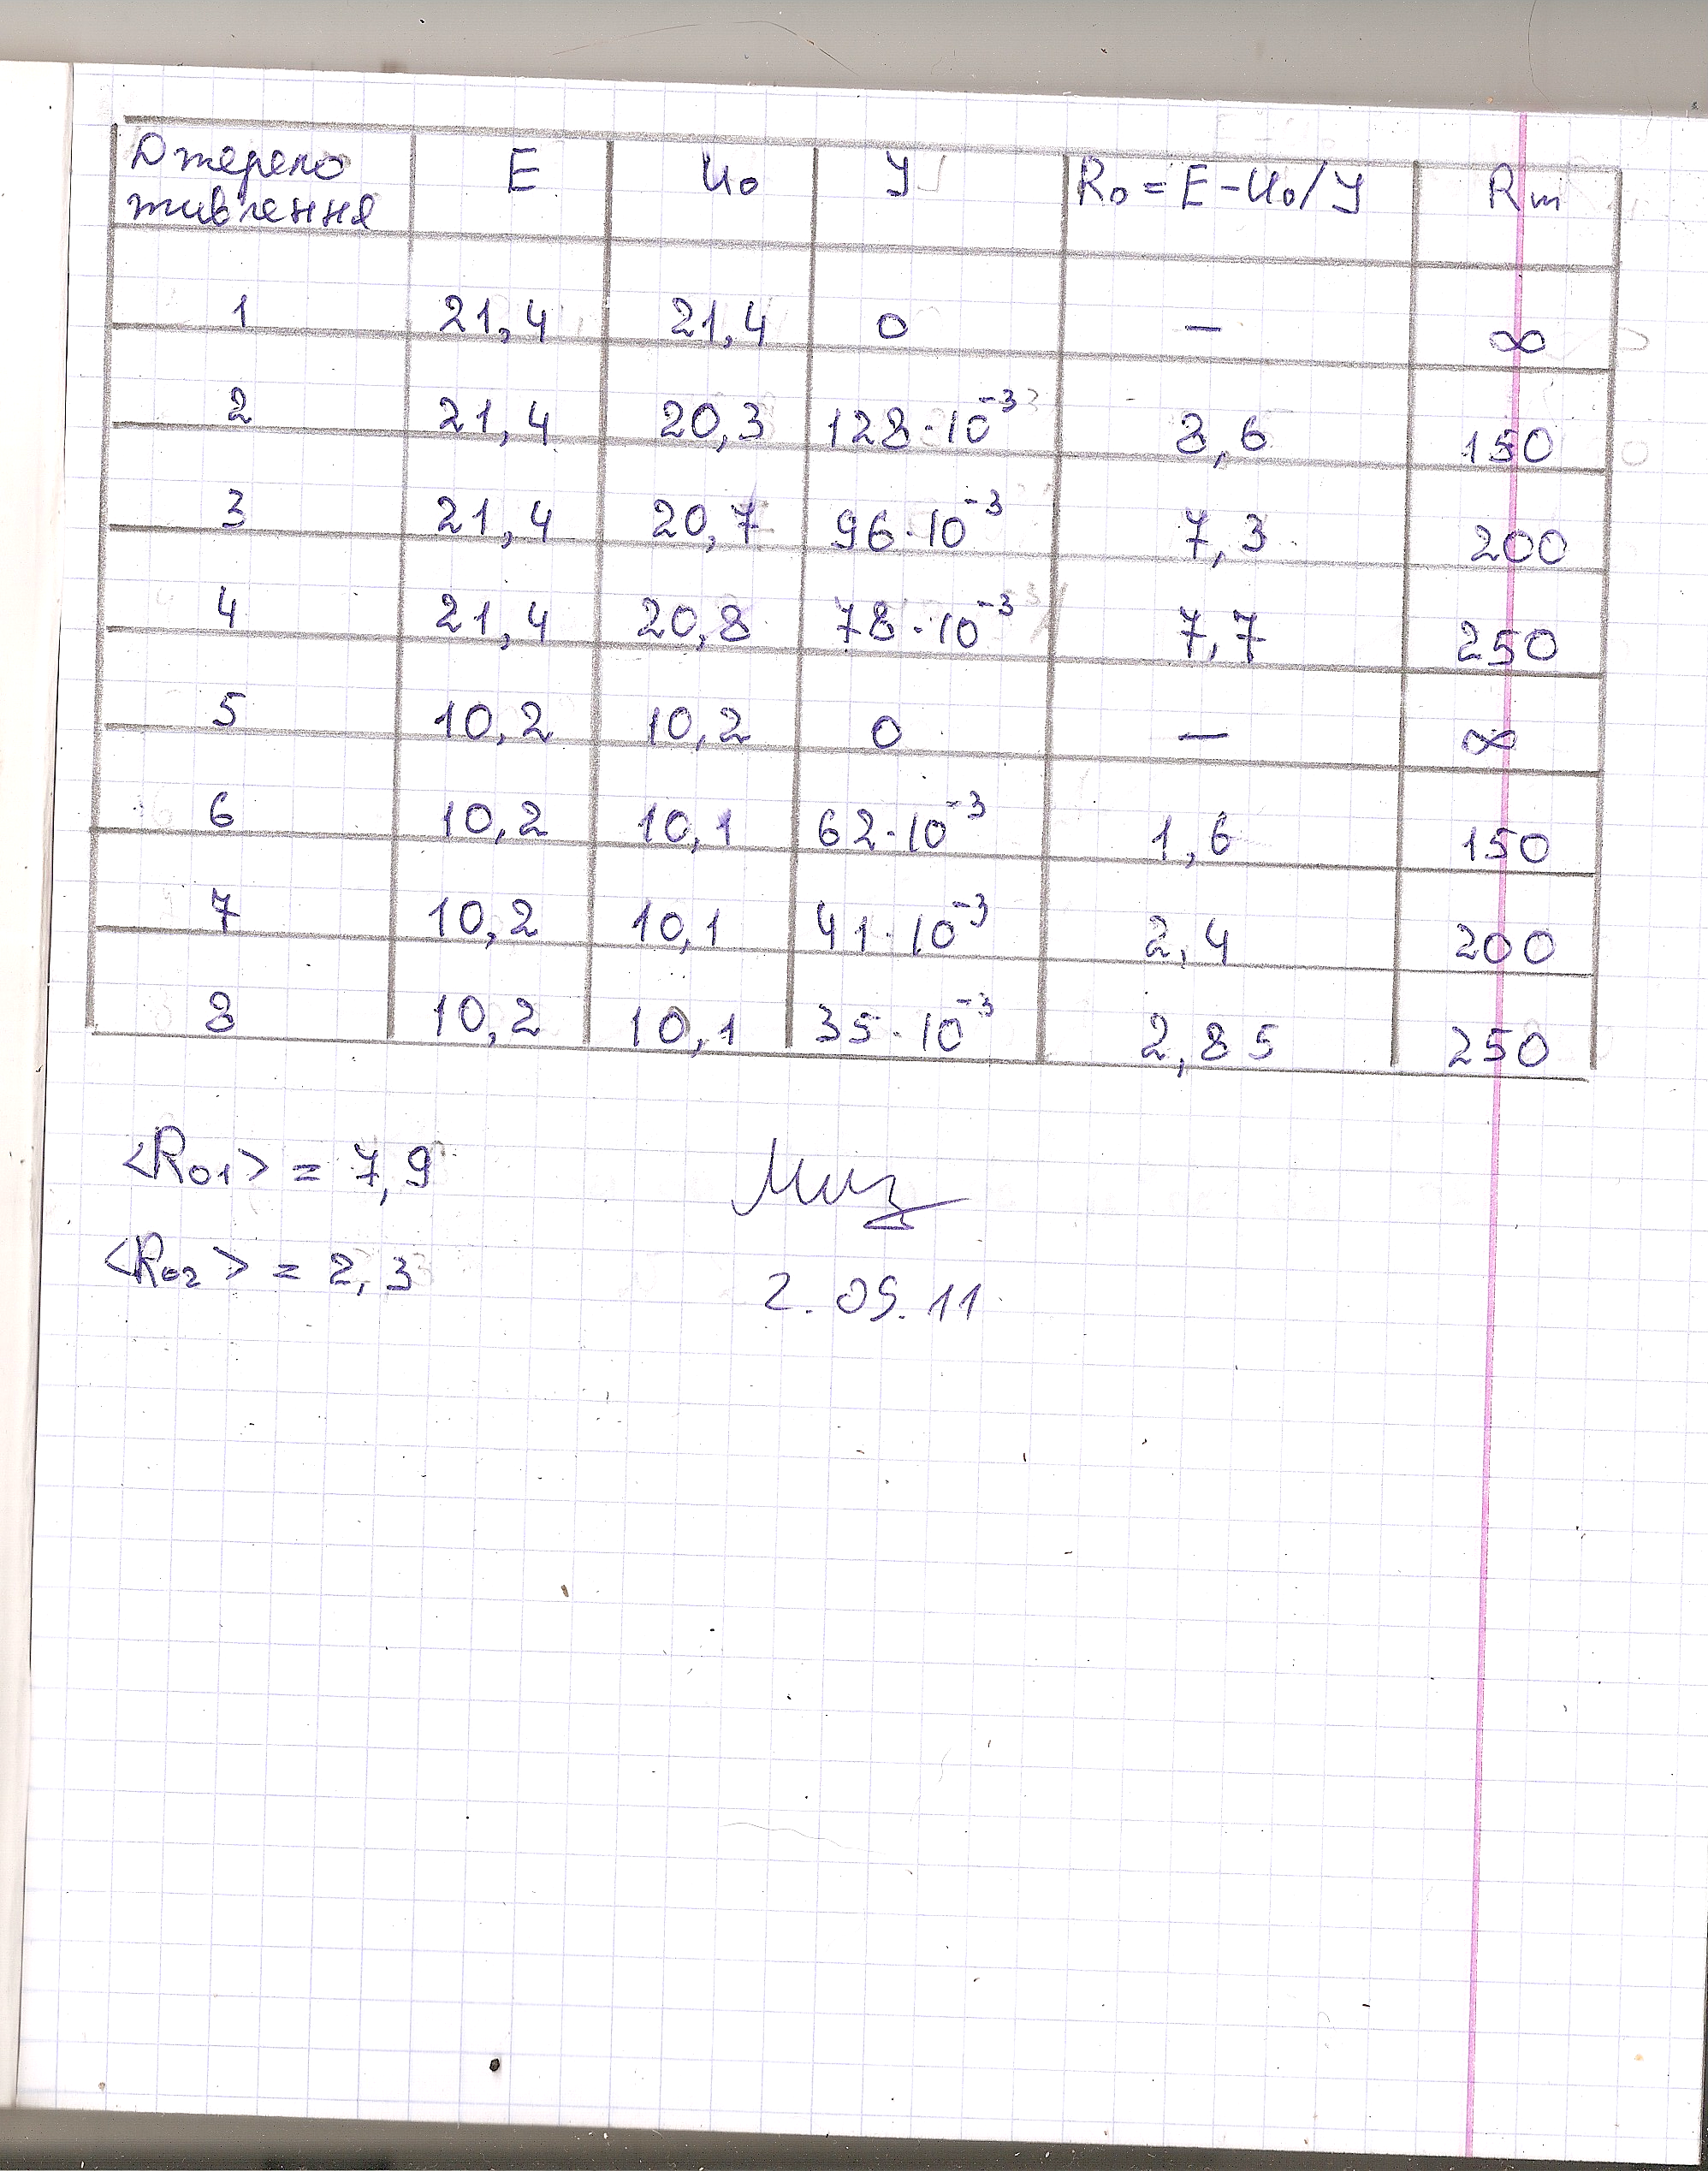 Джерело живлення E U₀ У R₀ = E - U₀/У Rт
1 21,4 21,4 0 — ∞
2 21,4 20,3 128·10⁻³ 8,6 150
3 21,4 20,7 96·10⁻³ 7,3 200
4 21,4 20,8 78·10⁻³ 7,7 250
5 10,2 10,2 0 — ∞
6 10,2 10,1 62·10⁻³ 1,6 150
7 10,2 10,1 41·10⁻³ 2,4 200
8 10,2 10,1 35·10⁻³ 2,85 250
<R₀₁> = 7,9
<R₀₂> = 2,3
2.09.11